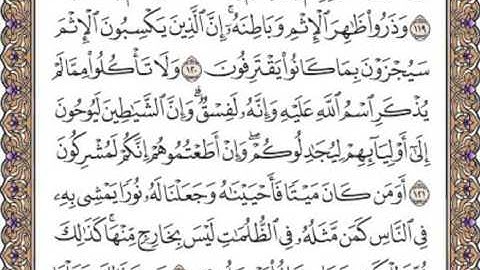 ﴿١١٩﴾ وَذَرُوا۟ ظَـٰهِرَ ٱلْإِثْمِ وَبَاطِنَهُۥٓ ۚ إِنَّ ٱلَّذِينَ يَكْسِبُونَ ٱلْإِثْمَ
سَيُجْزَوْنَ بِمَا كَانُوا۟ يَقْتَرِفُونَ ﴿١٢٠﴾ وَلَا تَأْكُلُوا۟ مِمَّا لَمْ
يُذْكَرِ ٱسْمُ ٱللَّهِ عَلَيْهِ وَإِنَّهُۥ لَفِسْقٌ ۗ وَإِنَّ ٱلشَّيَـٰطِينَ لَيُوحُونَ
إِلَىٰٓ أَوْلِيَآئِهِمْ لِيُجَـٰدِلُوكُمْ ۖ وَإِنْ أَطَعْتُمُوهُمْ إِنَّكُمْ لَمُشْرِكُونَ
﴿١٢١﴾ أَوَمَن كَانَ مَيْتًا فَأَحْيَيْنَـٰهُ وَجَعَلْنَا لَهُۥ نُورًا يَمْشِى بِهِۦ
فِى ٱلنَّاسِ كَمَن مَّثَلُهُۥ فِى ٱلظُّلُمَـٰتِ لَيْسَ بِخَارِجٍ مِّنْهَا ۚ كَذَٰلِكَ